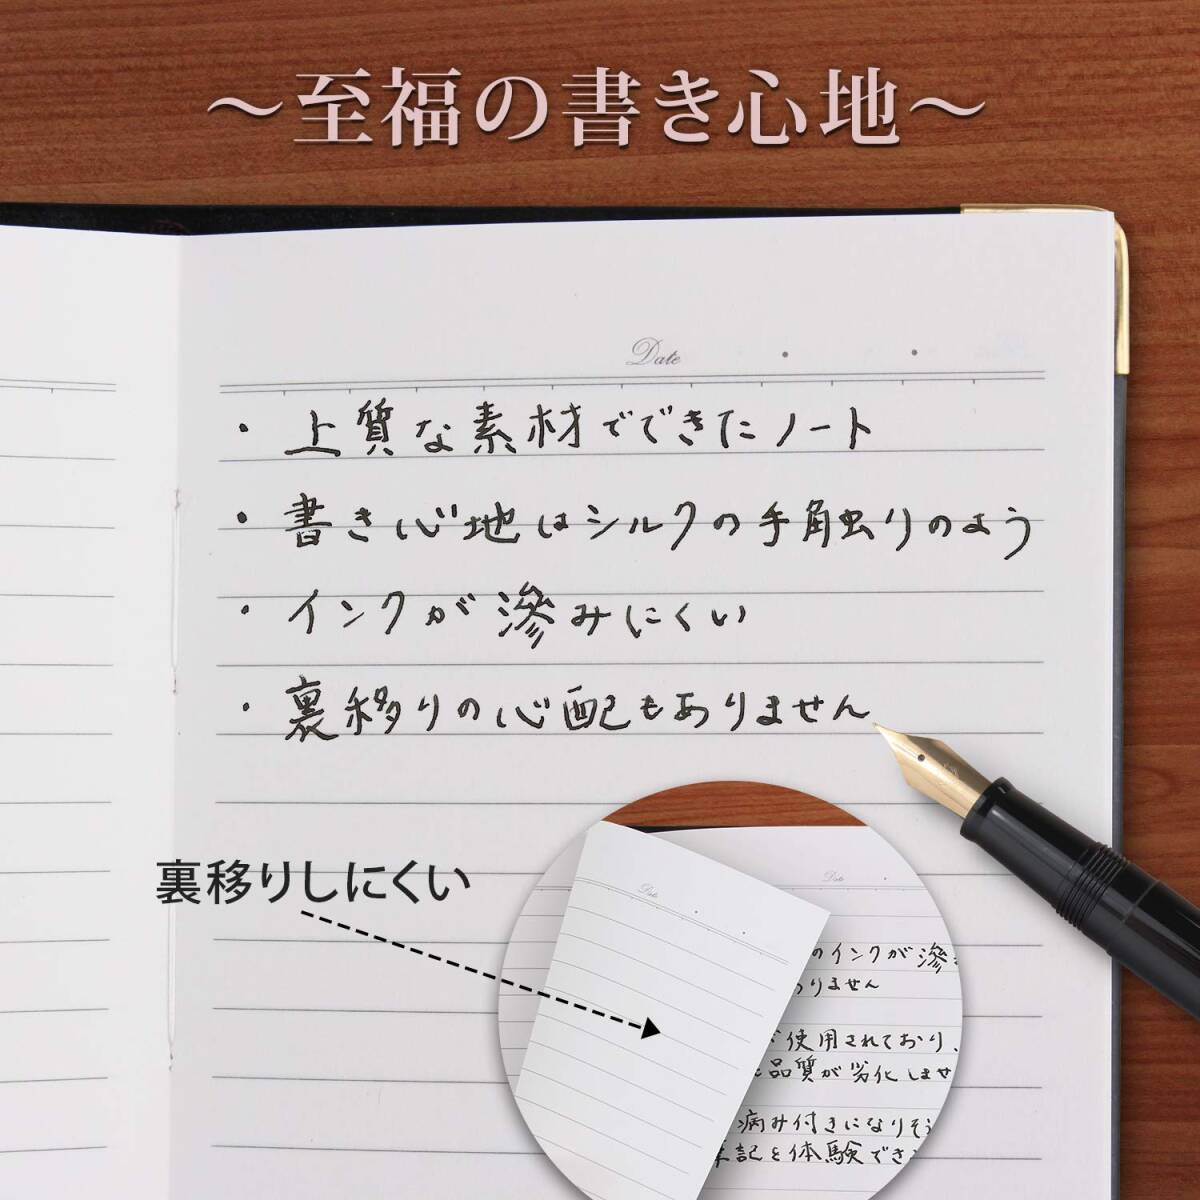 ～至福の書き心地～
Date
・上質な素材でできたノート
・書き心地はシルクの手触りのよう
・インクが滲みにくい
・裏移りの心配もありません
裏移りしにくい
Date
Date
のインクが滲
ありません
使用されており、
品質が劣化しませ
病み付きになりそう
記を体験でき